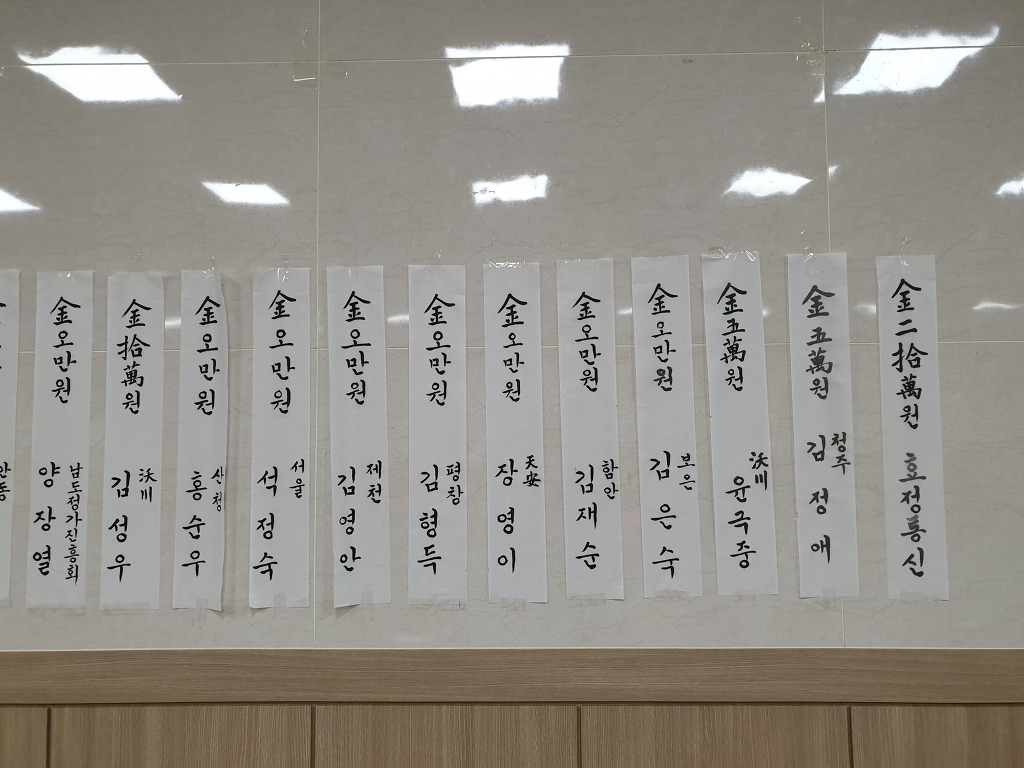 金二拾萬원 효정통신
金五萬원
청주
김정애
金五萬원
沃川
윤극중
金오만원
보은
김은숙
金오만원
함안
김재순
金오만원
天安
장영이
金오만원
평창
김형득
金오만원
제천
김영안
金오만원
서울
석정숙
金오만원
산청
홍순우
金拾萬원
沃川
김성우
金오만원
남도정가진흥회
양장열
안동